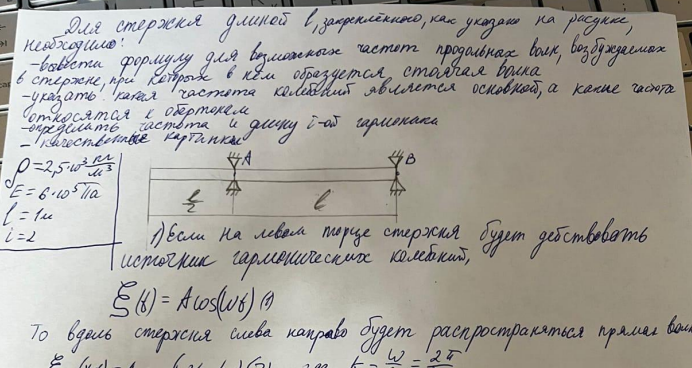 Для стержня длиной l, закреплённого, как указано на рисунке,
необходимо:
-вывести формулу для возможных частот продольных волн, возбуждаемых
в стержне, при которых в нём образуется стоячая волна
-указать какая частота колебаний является основной, а какие частота
относятся к обертонам
-определить частота и длину i-ой гармоника
- качественные картинки
ρ = 2,5·10³ кг/м³
E = 6·10⁵ Па
l = 1м
i = 2
A
B
l/2
l
1) Если на левом торце стержня будет действовать
источник гармонических колебаний,
ξ(t) = A cos(ωt) (1)
То вдоль стержня слева направо будет распространяться прямая